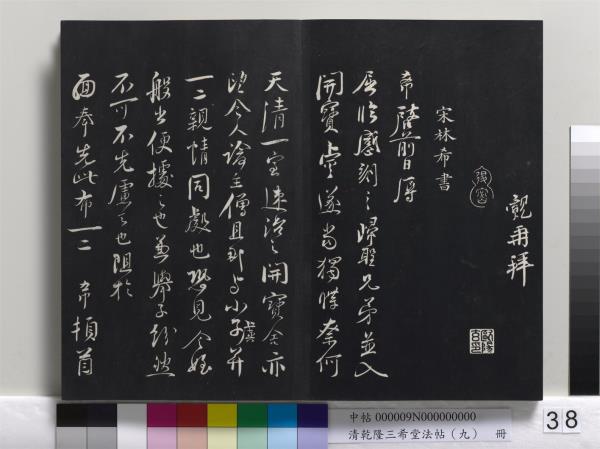 觀再拜
宋林希書
希啓前日辱
屈臨感刻之歸兄弟並入
開寶遂當獨奈何
天清一室速澄之開寶舍亦
望令人諭主僧且与小子并
一二親情同處也恐見令姪
般出便據之也兼舉子紛然
不可不先慮之也阻於
面奉先此布一二 希頓首
中帖 000009N000000000
清乾隆三希堂法帖（九） 冊
38